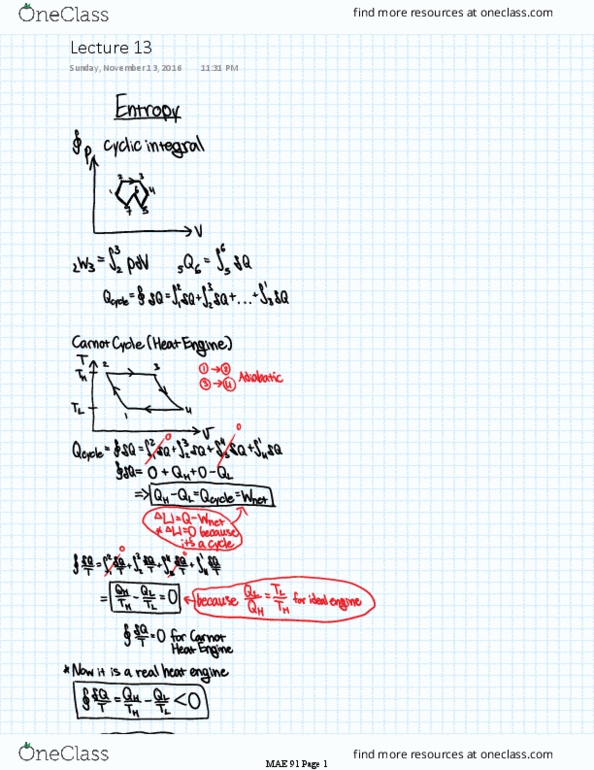 OneClass
find more resources at oneclass.com
Lecture 13
Sunday, November 13, 2016 11:31 PM
Entropy
∮ cyclic integral
P
2 3
1 6 4
7 5
V
₂W₃ = ∫₂³ pdV ₅Q₆ = ∫₅⁶ δQ
Qcycle = ∮ δQ = ∫₁² δQ + ∫₂³ δQ + ... + ∫₇¹ δQ
Carnot Cycle (Heat Engine)
T
TH 2 3
① → ②
③ → ④ Adiabatic
TL 1 4
V
Qcycle = ∮ δQ = ∫₁² δQ + ∫₂³ δQ + ∫₃⁴ δQ + ∫₄¹ δQ
0 0
∮ δQ = 0 + QH + 0 - QL
=> QH - QL = Qcycle = Wnet
ΔU = Q - Wnet
* ΔU = 0 because
its a cycle
∮ δQ/T = ∫₁² δQ/T + ∫₂³ δQ/T + ∫₃⁴ δQ/T + ∫₄¹ δQ/T
0 0
= QH/TH - QL/TL = 0 because QL/QH = TL/TH for ideal engine
∮ δQ/T = 0 for Carnot
Heat Engine
* Now it is a real heat engine
∮ δQ/T = QH/TH - QL/TL < 0
OneClass
find more resources at oneclass.com
MAE 91 Page 1